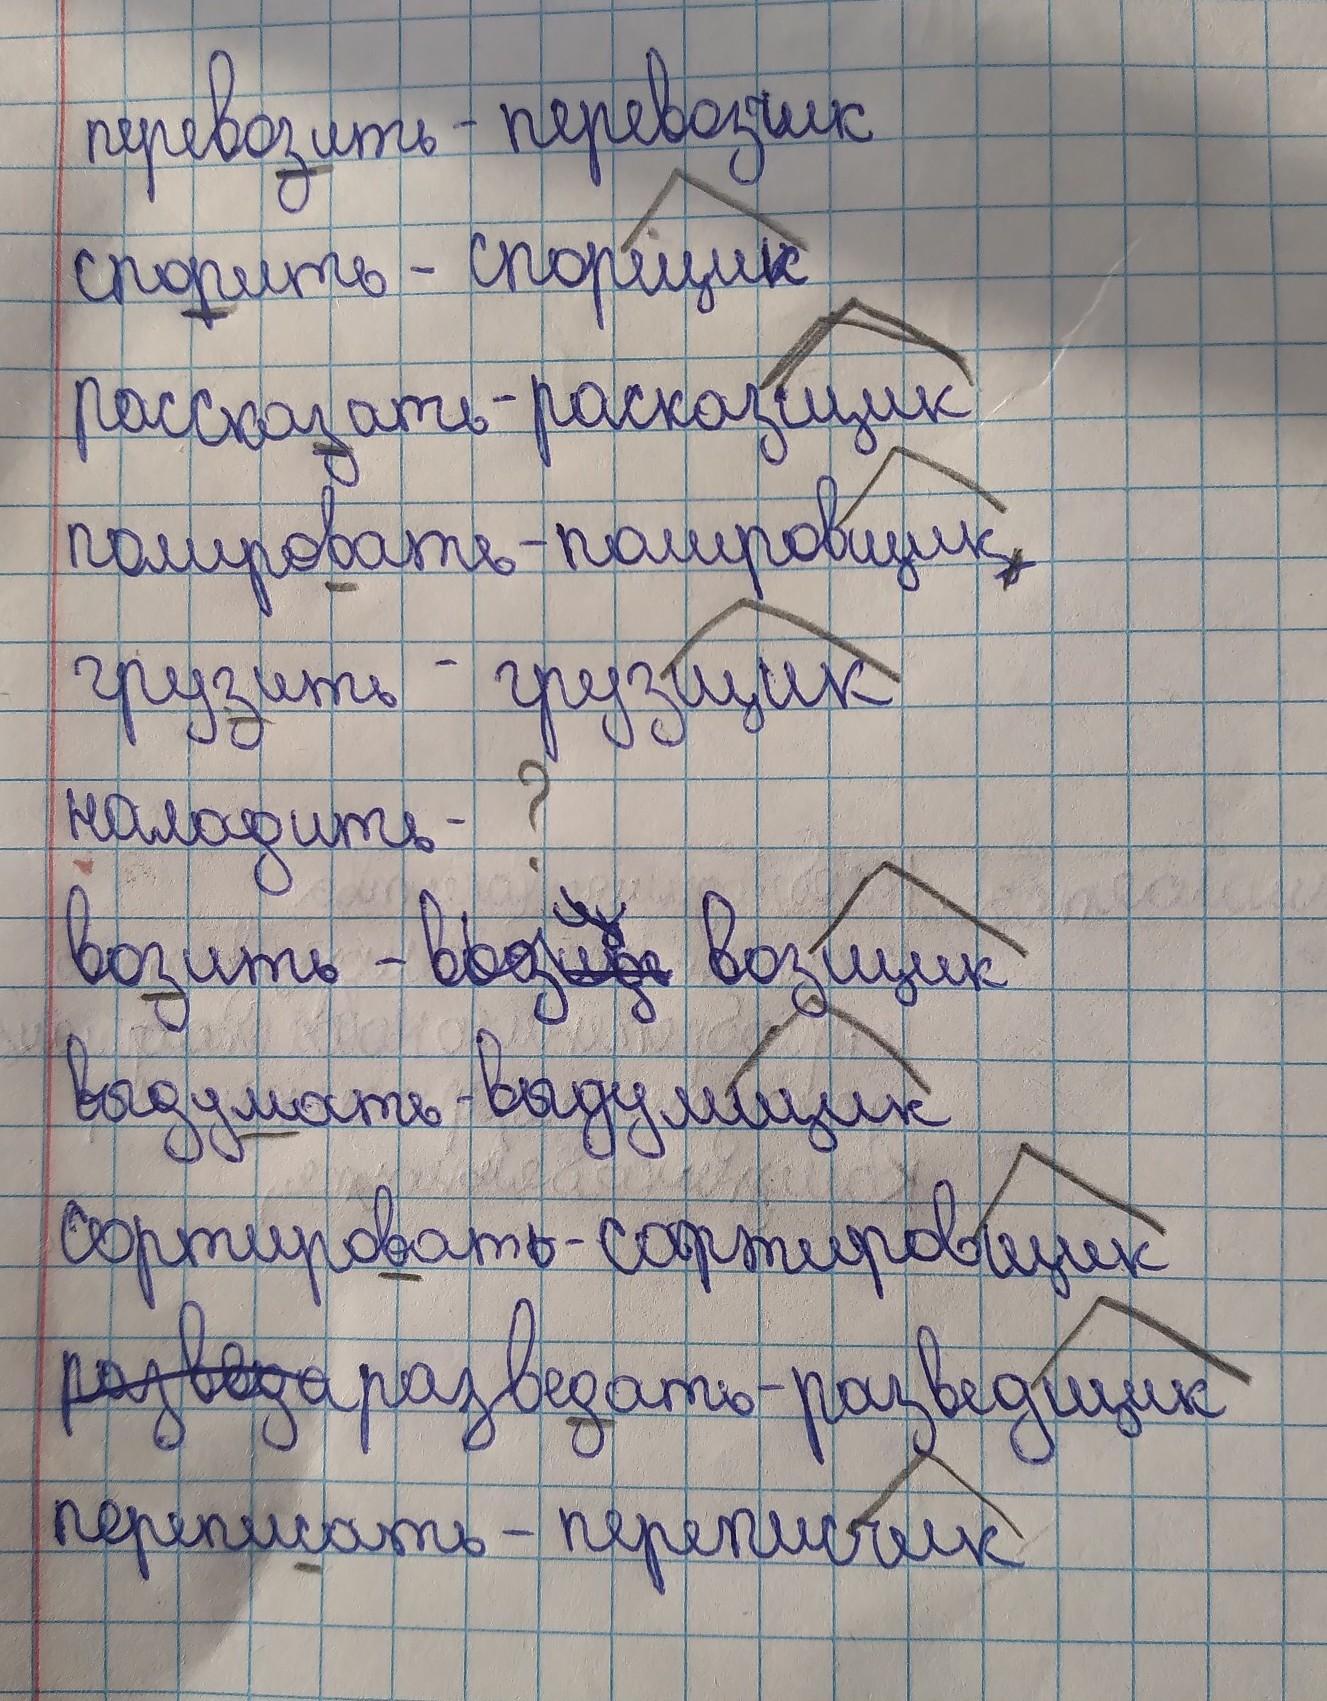 перевозить - перевозчик
спорить - спорщик
рассказать - расказщик
полировать - полировщик
грузить - грузщик
наладить - ?
возить - возщик
выдумать - выдумщик
сортировать - сортировщик
разведать - разведщик
переписать - переписчик